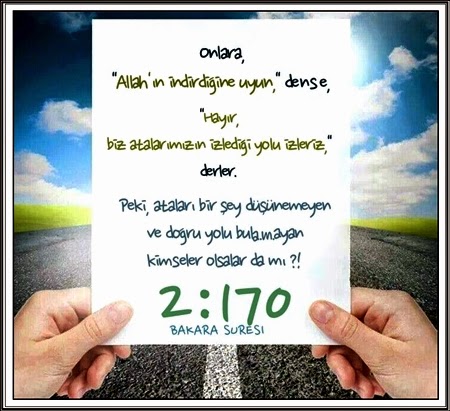 Onlara,
"Allah'ın indirdiğine uyun," dense,
"Hayır,
biz atalarımızın izlediği yolu izleriz,"
derler.
Peki, ataları bir şey düşünemeyen
ve doğru yolu bulamayan
kimseler olsalar da mı ?!
2:170
BAKARA SURESI